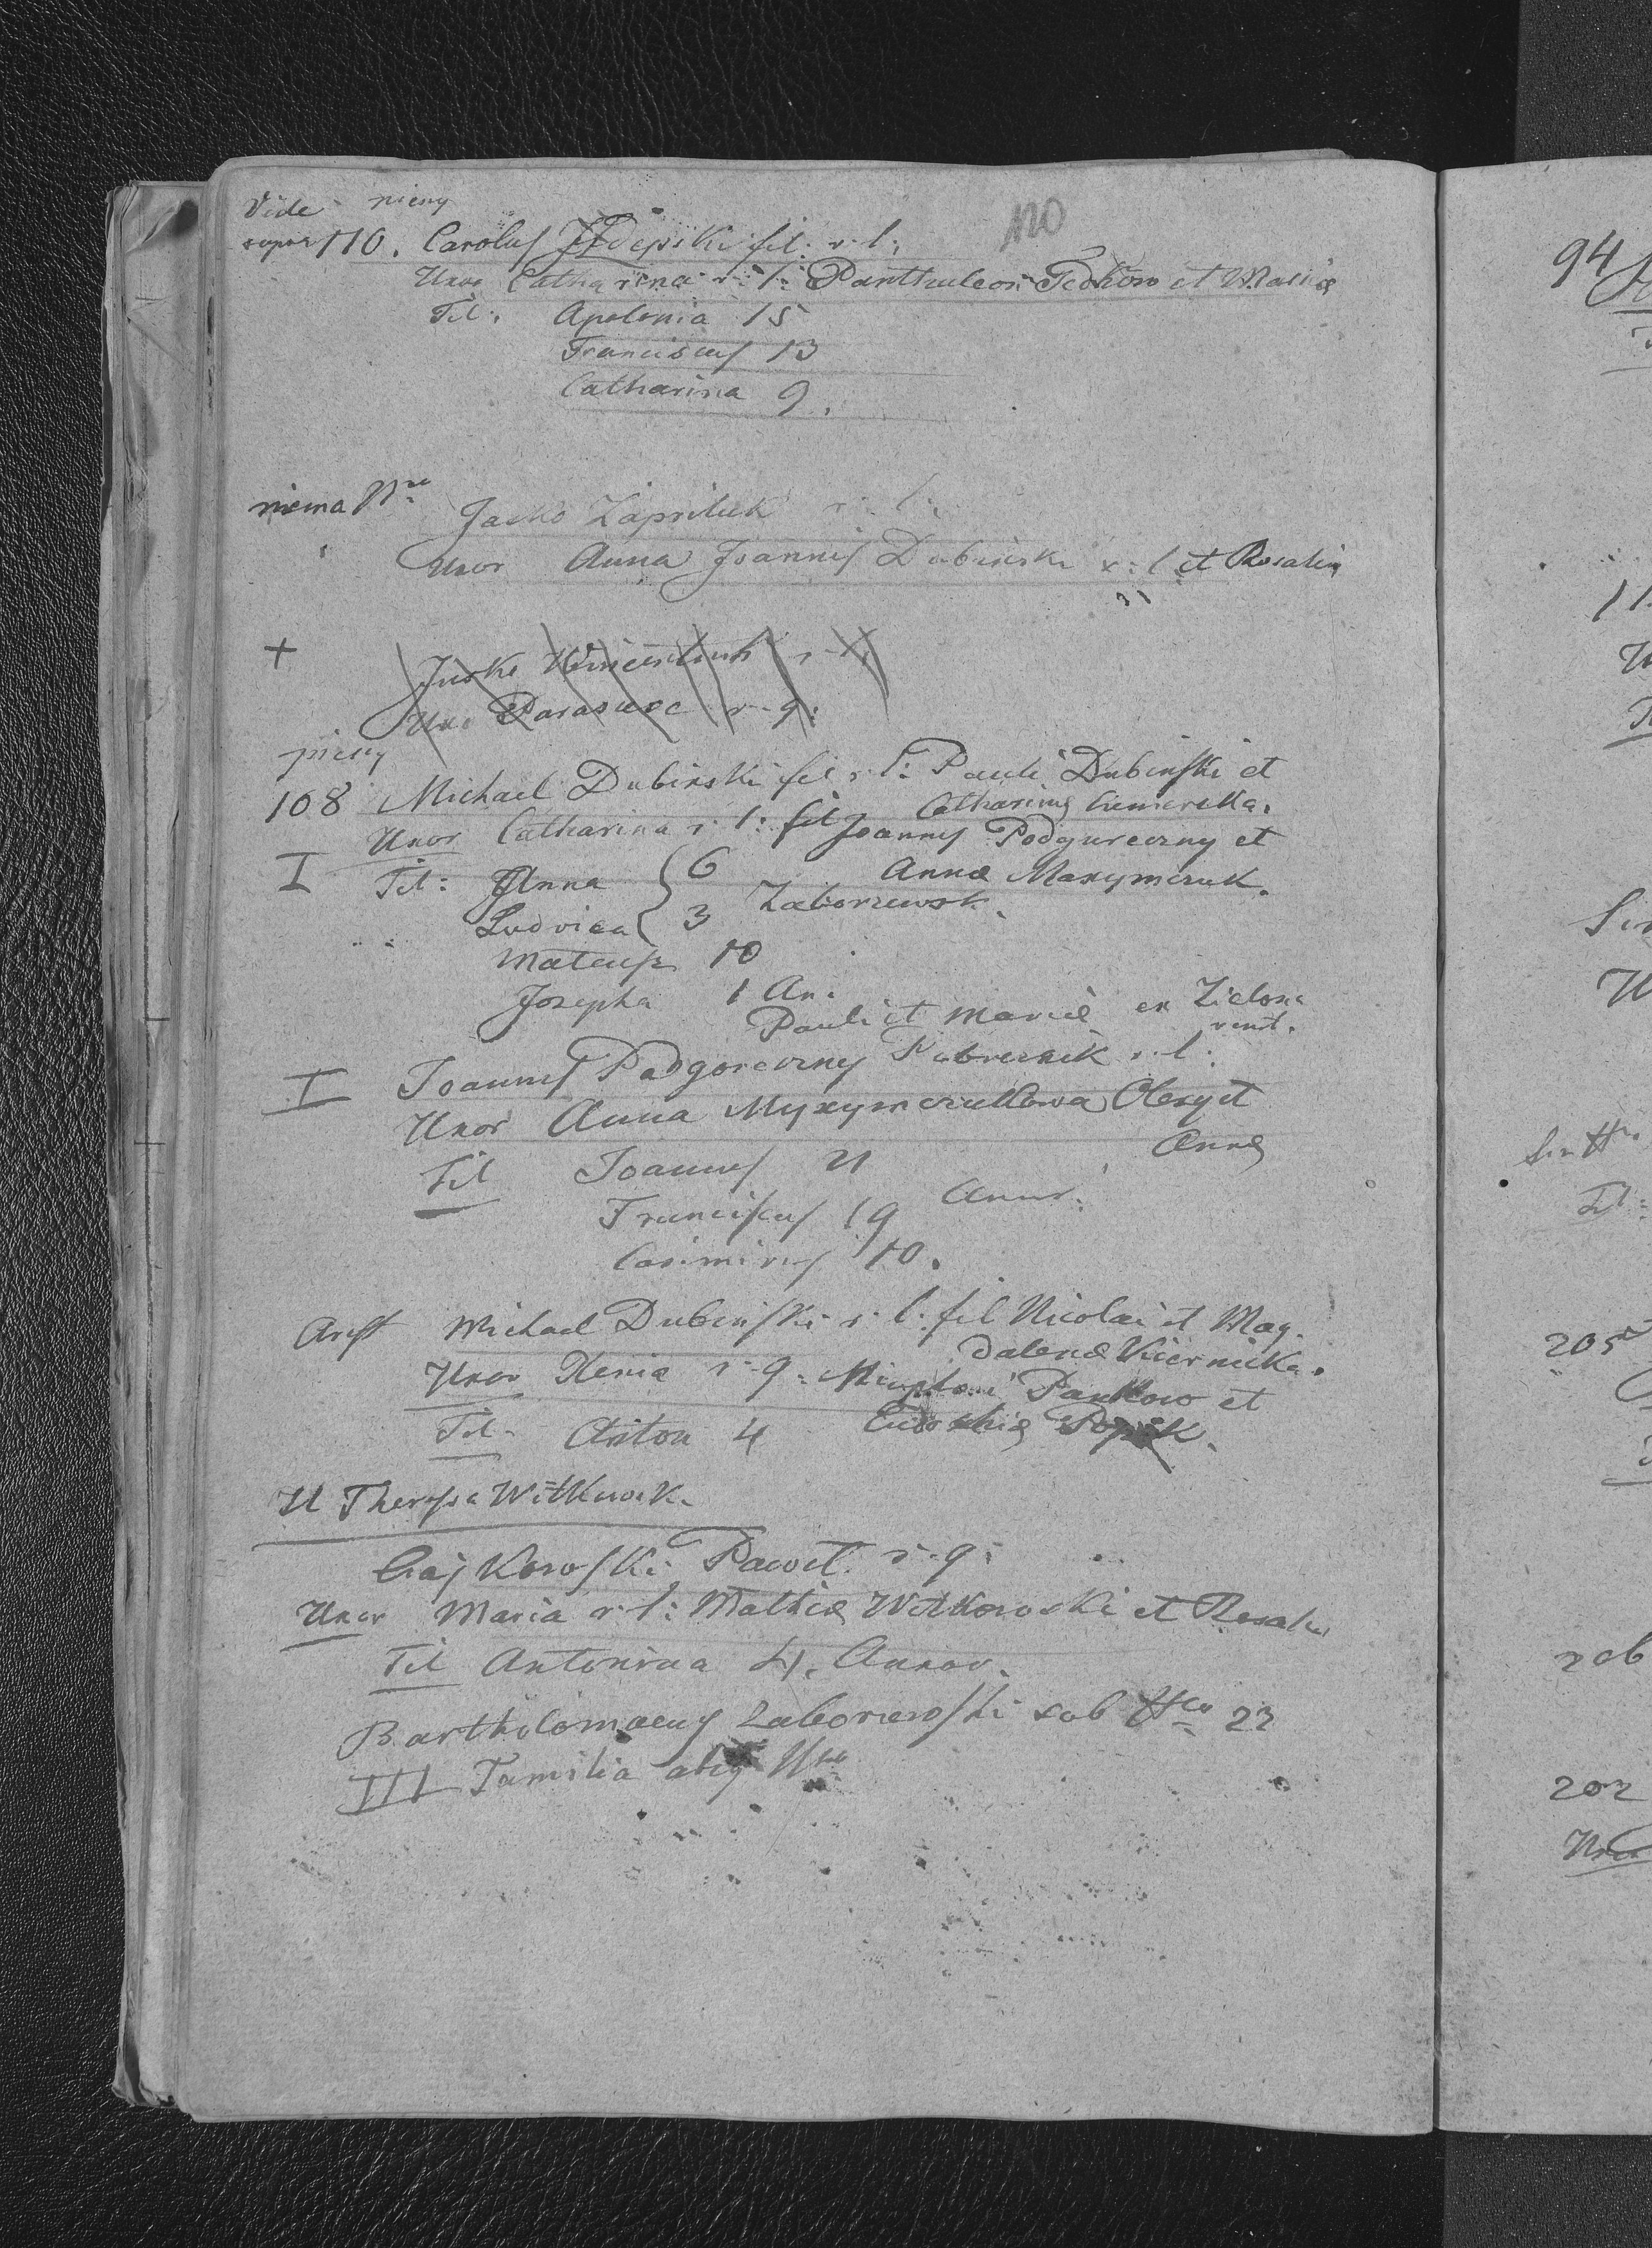 Vide pieny
supra 110. Carolus fil: r. l:
120
Uxor Catharina r: l: Panthuleon Fedkow et Mariæ
Fil: Apolonia 15
Franciscus 13
Catharina 9.
niema Nro Jasko Zapriluk r: l:
Uxor Anna Joannis Dubinski r: l et Rosaliæ
+ Jusko Wincentiuk r
Uxo Parasuxe r. g:
pieny
108 Michael Dubinski fil r. l: Pauli Dubinski et
Catharinæ
Uxor Catharina r: l: fil Joannis Podgureczny et
I Fil: Anna 6 Annæ Maxymczuk.
Ludvica 3 Zaborzewsk.
Mateusz 10
Josepha 1 An:
Pauli et Mariæ ex Zielona
I Joannes Podgoreczny r. l:
Uxor Anna Myxymczukowa Olexy et
Annæ
Fil Joannes 21
Franciscus 19 Annor:
Casimirus 10.
Michael Dubinski r: l: fil Nicolai et Mag-
dalenæ
Uxor Xenia r: g: Pankow et
Fil: Anton 4 Eudoxhiæ
II Theressa Witkowsk.
Gajkowski Paweł r: g:
Uxor Maria r: l: Mathiæ Witkowski et Rosaliæ
Fil Antonina 4. Annor.
Bartholomaeus Zaborzewski sub Nro 22
III Familia Nro
94
11
205
206
202